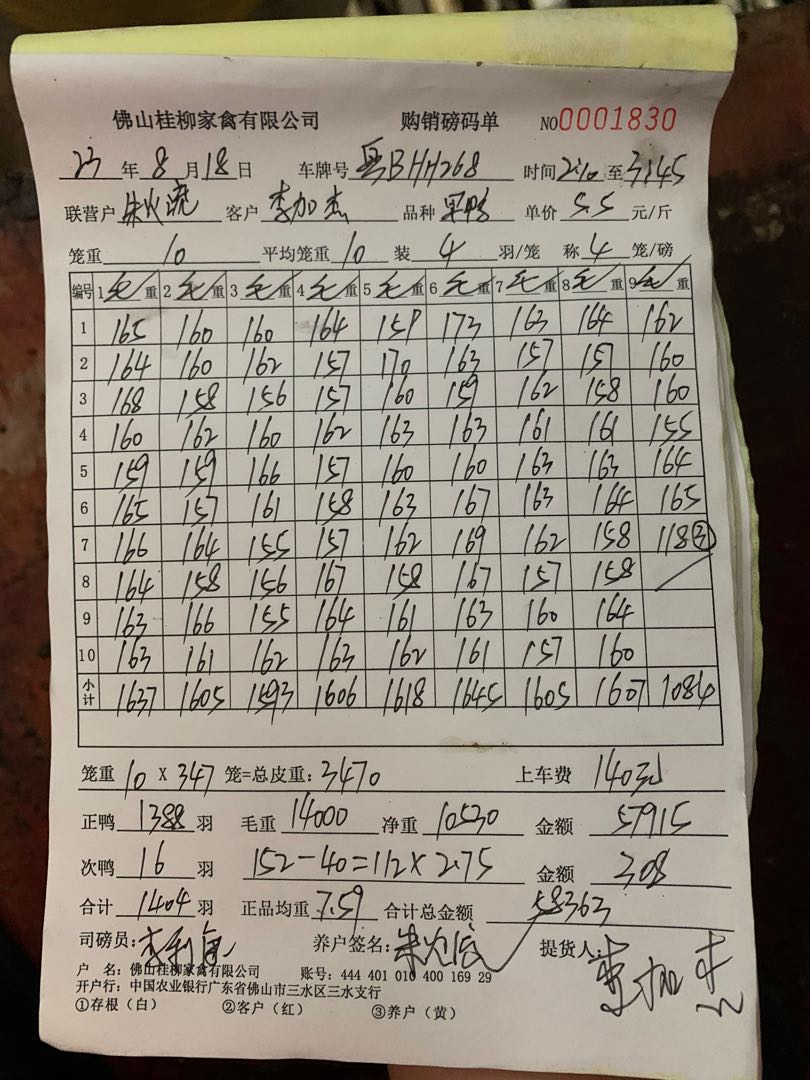 佛山桂柳家禽有限公司 购销磅码单 NO 0001830
23 年 8 月 18 日 车牌号 粤BHH268 时间 2:10 至 3:45
联营户 客户 李加杰 品种 单价 5.5 元/斤
笼重 10 平均笼重 10 装 4 羽/笼 称 4 笼/磅
编号 1 毛重 2 毛重 3 毛重 4 毛重 5 毛重 6 毛重 7 毛重 8 毛重 9 毛重
1 165 160 160 164 159 173 163 164 162
2 164 160 162 157 170 163 157 157 160
3 168 158 156 157 160 159 162 158 160
4 160 162 160 162 163 163 161 161 155
5 159 159 166 157 160 160 163 163 164
6 165 157 161 158 163 167 163 164 165
7 166 164 155 157 162 169 162 158 118③
8 164 158 156 167 158 167 157 158
9 163 166 155 164 161 163 160 164
10 163 161 162 163 162 161 157 160
小计 1637 1605 1593 1606 1618 1645 1605 1607 1084
笼重 10 X 347 笼=总皮重: 3470 上车费 140元
正鸭 1388 羽 毛重 14000 净重 10530 金额 57915
次鸭 16 羽 152-40=112×2.75 金额 308
合计 1404 羽 正品均重 7.59 合计总金额 58363
司磅员: 养户签名: 提货人: 李加杰
户 名: 佛山桂柳家禽有限公司 账号: 444 401 010 400 169 29
开户行: 中国农业银行广东省佛山市三水区三水支行
①存根（白） ②客户（红） ③养户（黄）